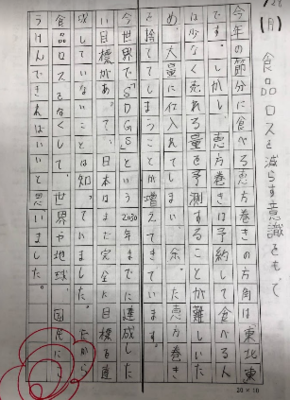 (月)
食品ロスを減らす意識をもって
今年の節分に食べる恵方巻きの方角は「東北東」
です。しかし、恵方巻きは予約して食べる人
は少なく売れる量を予測することが難しいた
め、大量に仕入れてしまい余った恵方巻き
を捨ててしまうことが増えてきています。
今世界で「SDGs」という2030年までに達成した
い目標があって、日本はまだ完全に目標を達
成していないことは知った。だから
食品ロスをなくして、世界や地球、国民に
うけんできればいいと思いました。
20×10